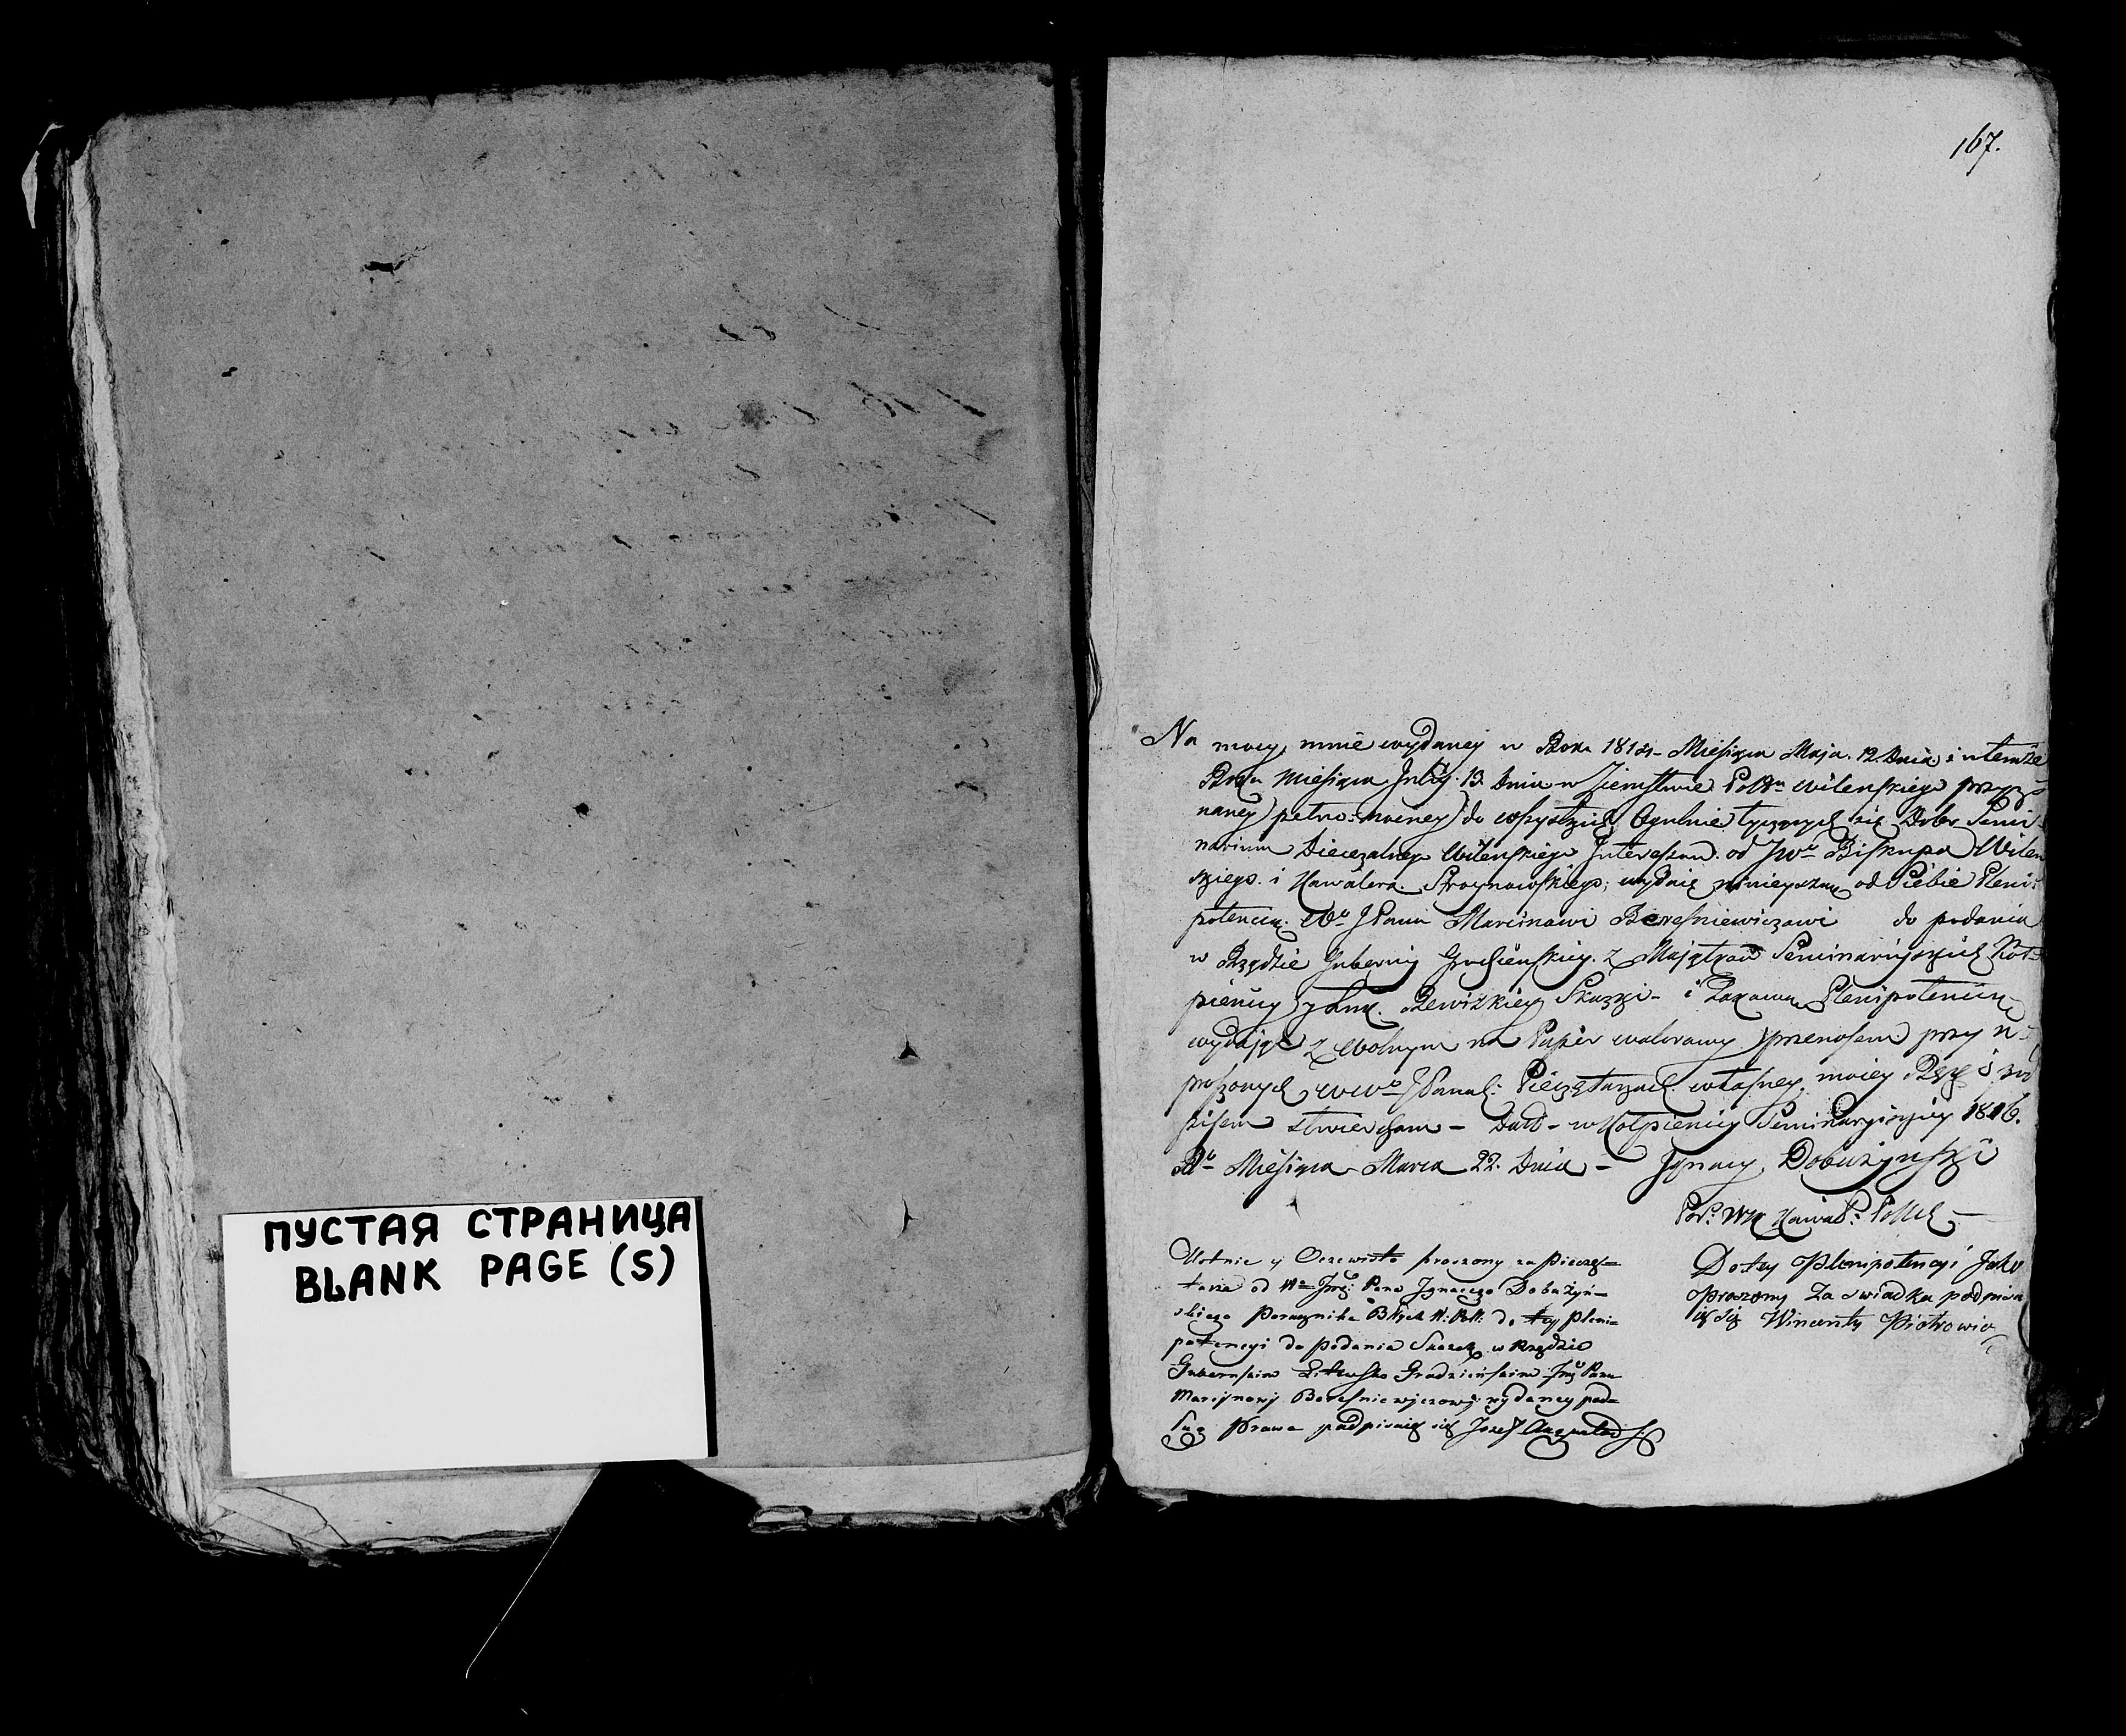 ПУСТАЯ СТРАНИЦА
BLANK PAGE (S)
167.
Na mocy mnie wydaney w Roku Miesiąca Maja. 12. Dnia i w temże
Roku Miesiąca Julij. 13. Dnia w Ziemstwie Wilenskiego przyz-
naney pełno-mocney do wszystkich Ogulnie tyczących się Dobr Semi-
narium Diecezalnego Wilenskiego Interessow. od JWo Biskupa Wilen
skiego. i Kawalera. Stroynowskiego; wydaię ninieyszą od Siebie Pleni-
potencią Wo JPanu Marcinowi Beresniewiczowi do podania
w Rządzie Gubernij Grodzieńskiey. z Maiątków Seminaryiskich Koł-
pienicy Rewizkiey Skazki - i Takową Plenipotencią
wydaiąc z wolnym na Papier walorowy przenosem przy u-
proszonych JPanach Pieczętarzach własney moiey Ręki pod
pisem stwierdzam - Datt - w Kołpienicy Seminaryiskiey 1816.
Ro Miesiąca Marca 22. Dnia - Ignacy Dobużynski
Por: WX Kawal:
Ustnie y Oczewisto proszony za Pieczęt=
tarza od Wo Jmć Pana Ignacego Dobużyń-
skiego Porucznika do tey Pleni=
potencyi do Podania Skazek w Rządzie
Gubernskim Litewsko Grodzieńskim Jmć Panu
Marcynowy Beresniewyczowy wydaney pod=
ług Prawa podpisuię się Jozef
Do tey Plenipotencyi Jako
Proszony Za swiadka podpisu
ię się Wincenty Piotrowic